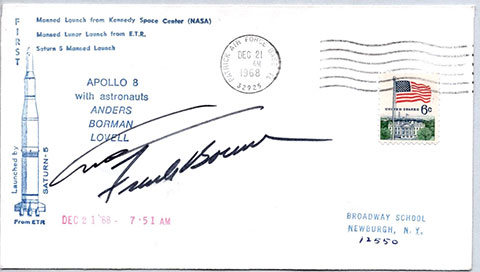 FIRST
Manned Launch from Kennedy Space Center (NASA)
Manned Lunar Launch from E.T.R.
Saturn 5 Manned Launch
APOLLO 8
with astronauts
ANDERS
BORMAN
LOVELL
Launched by
SATURN-5
From ETR
PATRICK AIR FORCE
DEC 21
1968
32925
UNITED STATES
6c
Frank Borman
DEC 21 '68 - 7 51 AM
BROADWAY SCHOOL
NEWBURGH, N. Y.
12550